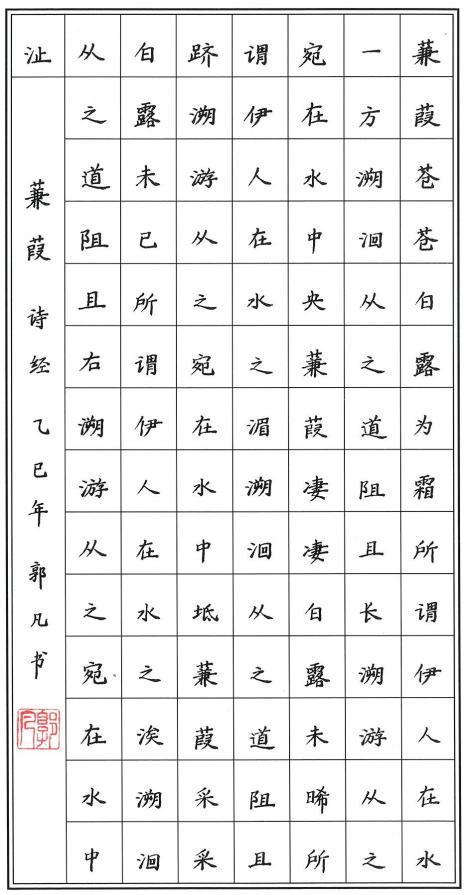 蒹葭苍苍白露为霜所谓伊人在水
一方溯洄从之道阻且长溯游从之
宛在水中央蒹葭凄凄白露未晞所
谓伊人在水之湄溯洄从之道阻且
跻溯游从之宛在水中坻蒹葭采采
白露未已所谓伊人在水之涘溯洄
从之道阻且右溯游从之宛在水中
沚
蒹葭 诗经 乙巳年 郭凡书
郭凡